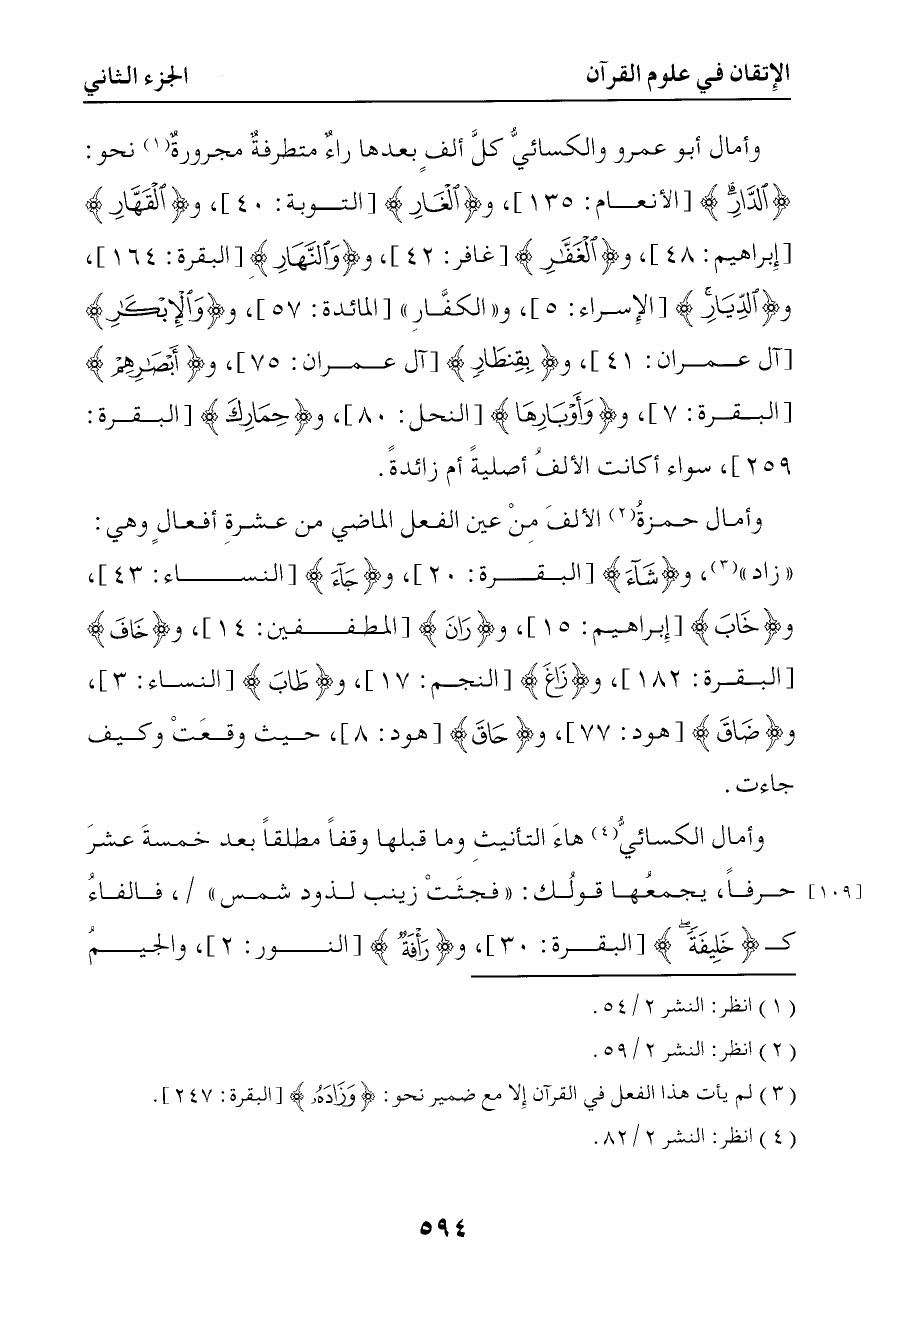 الإتقان في علوم القرآن الجزء الثاني
وأمال أبو عمرو والكسائيُّ كلَّ ألفٍ بعدها راءٌ متطرفةٌ مجرورةٌ(١) نحو:
﴿ٱلدَّارِۗ﴾ [الأنعام: ١٣٥]، و﴿ٱلْغَارِ﴾ [التوبة: ٤٠]، و﴿ٱلْقَهَّارِ﴾
[إبراهيم: ٤٨]، و﴿ٱلْغَفَّٰرِ﴾ [غافر: ٤٢]، و﴿وَٱلنَّهَارِ﴾ [البقرة: ١٦٤]،
و﴿ٱلدِّيَارِۚ﴾ [الإسراء: ٥]، و«الكفَّار» [المائدة: ٥٧]، و﴿وَٱلْإِبْكَٰرِ﴾
[آل عمران: ٤١]، و﴿بِقِنطَارٍ﴾ [آل عمران: ٧٥]، و﴿أَبْصَٰرِهِمْ﴾
[البقرة: ٧]، و﴿وَأَوْبَارِهَا﴾ [النحل: ٨٠]، و﴿حِمَارِكَ﴾ [البقرة:
٢٥٩]، سواء أكانت الألفُ أصليةً أم زائدةً.
وأمال حمزةُ(٢) الألفَ مِنْ عين الفعل الماضي من عشرةِ أفعالٍ وهي:
«زاد»(٣)، و﴿شَآءَ﴾ [البقرة: ٢٠]، و﴿جَآءَ﴾ [النساء: ٤٣]،
و﴿خَابَ﴾ [إبراهيم: ١٥]، و﴿رَانَ﴾ [المطففين: ١٤]، و﴿خَافَ﴾
[البقرة: ١٨٢]، و﴿زَاغَ﴾ [النجم: ١٧]، و﴿طَابَ﴾ [النساء: ٣]،
و﴿ضَاقَ﴾ [هود: ٧٧]، و﴿حَاقَ﴾ [هود: ٨]، حيث وقعَتْ وكيف
جاءت.
وأمال الكسائيُّ(٤) هاءَ التأنيثِ وما قبلها وقفاً مطلقاً بعد خمسةَ عشرَ
[١٠٩] حرفاً، يجمعُها قولُك: «فجثَتْ زينب لذود شمس» /، فالفاءُ
كـ﴿خَلِيفَةًۖ﴾ [البقرة: ٣٠]، و﴿رَأْفَةٌ﴾ [النور: ٢]، والجيمُ
(١) انظر: النشر ٢/٥٤.
(٢) انظر: النشر ٢/٥٩.
(٣) لم يأت هذا الفعل في القرآن إلا مع ضمير نحو: ﴿وَزَادَهُۥ﴾ [البقرة: ٢٤٧].
(٤) انظر: النشر ٢/٨٢.
٥٩٤